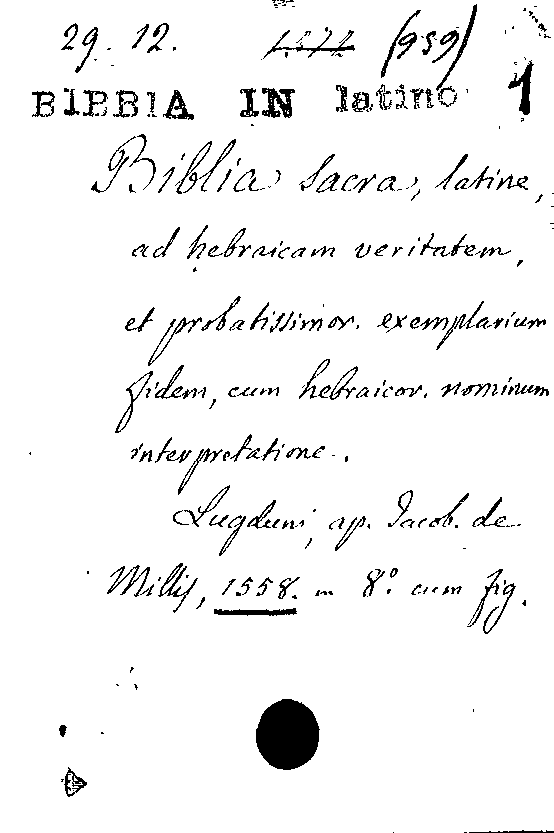 29. 12. (959)
BIBBIA IN latino 1
Biblia sacra, latine,
ad hebraicam veritatem,
et probatissimor. exemplarium
fidem, cum hebraicor. nominum
interpretatione.
Lugduni, ap. Jacob. de
Millis, 1558. in 8.° cum fig.